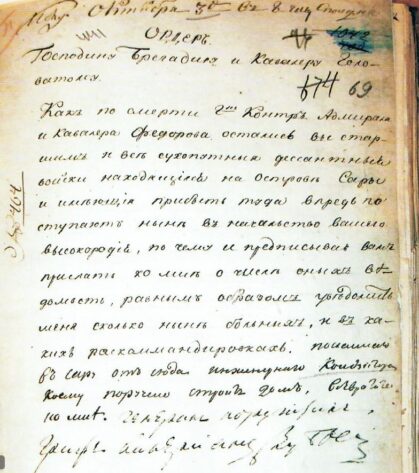 Октября 3го
441
Ордеръ.
Господину Бригадиру и Кавалеру Голо-
ватому.
674 69
Какъ по смерти Гна Контръ Адмирала
и Кавалера Федорова остались вы стар-
шимъ и все сухопутныя десантныя
войски находящiяся на Островѣ Сары
и имѣющiя притить туда впредь по
ступаютъ нынѣ въ начальство вашего
высокородiя, по чему и предписываю вамъ
прислать ко мнѣ о числѣ оныхъ вѣ-
домость, равнымъ образомъ увѣдомить
меня сколько нынѣ больныхъ, и въ ка-
кихъ раскоммандировкахъ.
въ Сару отъ сюда инженерного
коему поручено строить домъ,
ко мнѣ. Генералъ порутчикъ
Графъ
№ 464